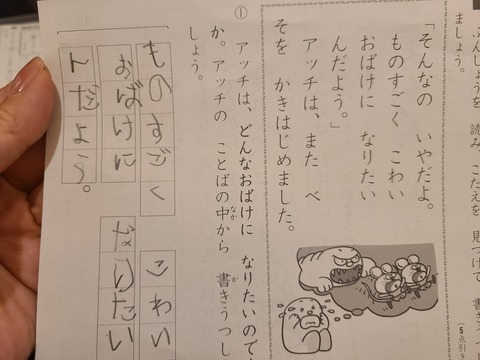 ぶんしょうを 読み、こたえを 見つけて 書き
ましょう。
(5点引き
「そんなの いやだよ。
ものすごく こわい
おばけに なりたい
んだよう。」
アッチは、また べ
そを かきはじめました。
①
アッチは、どんなおばけに なりたいので
か。アッチの ことばの中から 書きうつし
なか
か
しょう。
ものすごく こわい
おばけに なりたい
んだよう。